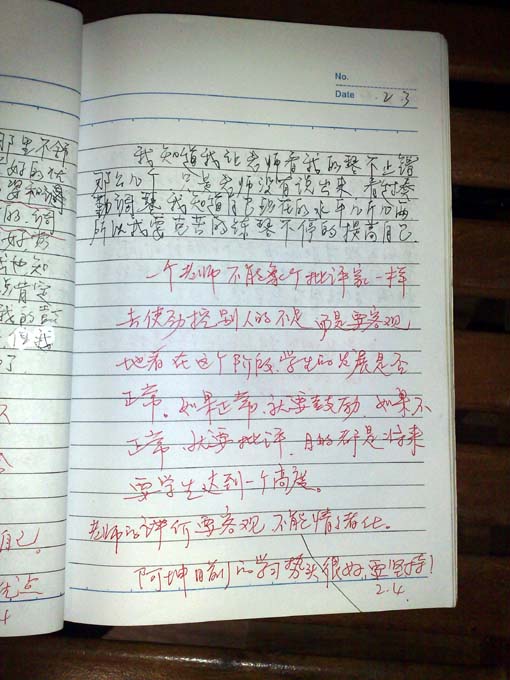 那里不
好的
的.调
好
知
我的
了
自己.
No.
Date 2.3
我知道我让老师看我的琴不止错
那么几个 只是老师没有说出来 看过秦
勤调琴 我知道自己现在的水平几斤几两
所以我要克苦的练琴不停的提高自己.
一个老师不能象个批评家一样
去使劲挖别人的不足 而是要客观
地看在这个阶段.学生的发展是否
正常。如果正常.就要鼓励.如果不
正常.就要批评.目的都是将来
要学生达到一个高度。
老师的评价要客观 不能情绪化。
阿坤目前的学习势头很好,要坚持!
2.4.